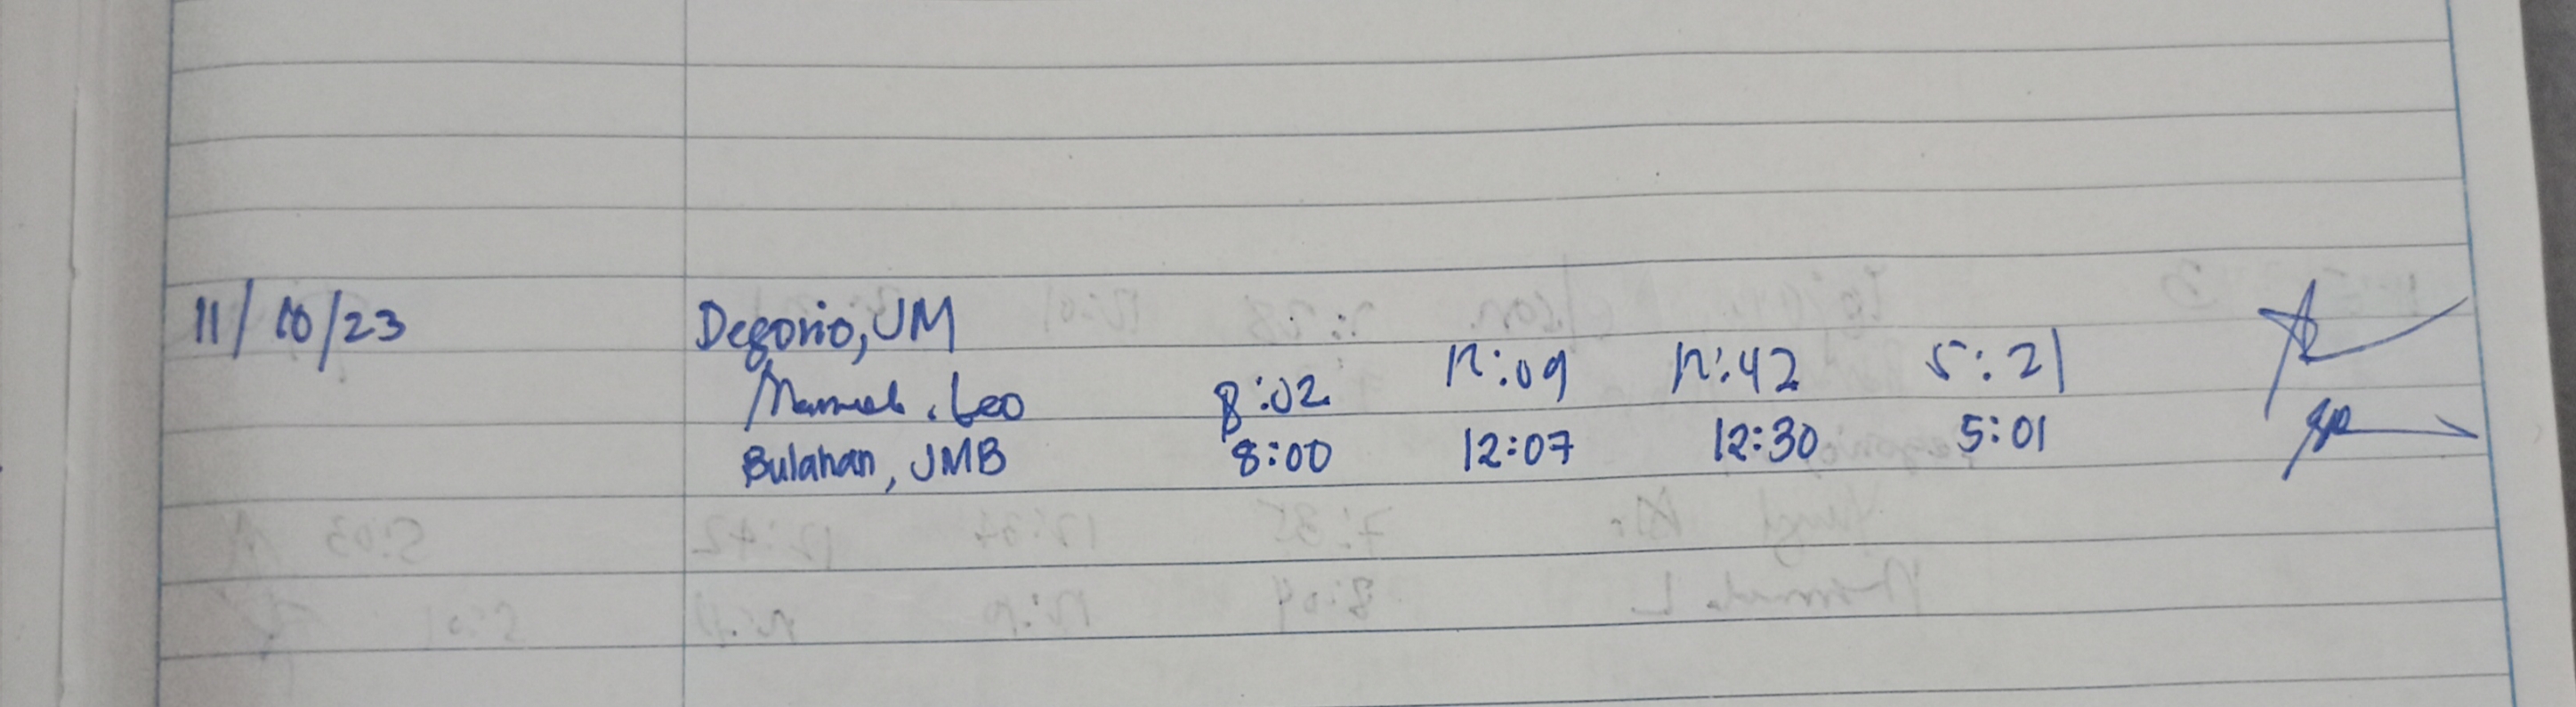 11/10/23 Degorio, JM
Manuel. Leo 8:02 12:09 12:42 5:21
Bulahan, JMB 8:00 12:07 12:30 5:01